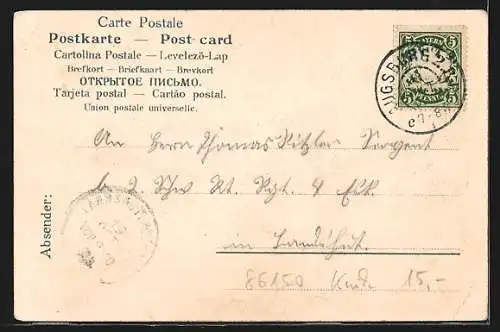 Carte Postale
Postkarte — Post card
Cartolina Postale — Levelező-Lap
Brefkort — Briefkaart — Brevkort
ОТКРЫТОЕ ПИСЬМО.
Tarjeta postal — Cartão postal.
Union postale universelle.
BAYERN
5 5
5 PFENNIG 5
AUGSBURG
7-8
An Herrn Thomas Kitzler Sergent
b. 2. Schw Rt. Rgt. 4 Esk.
in Landshut.
Absender:
86150 15,-